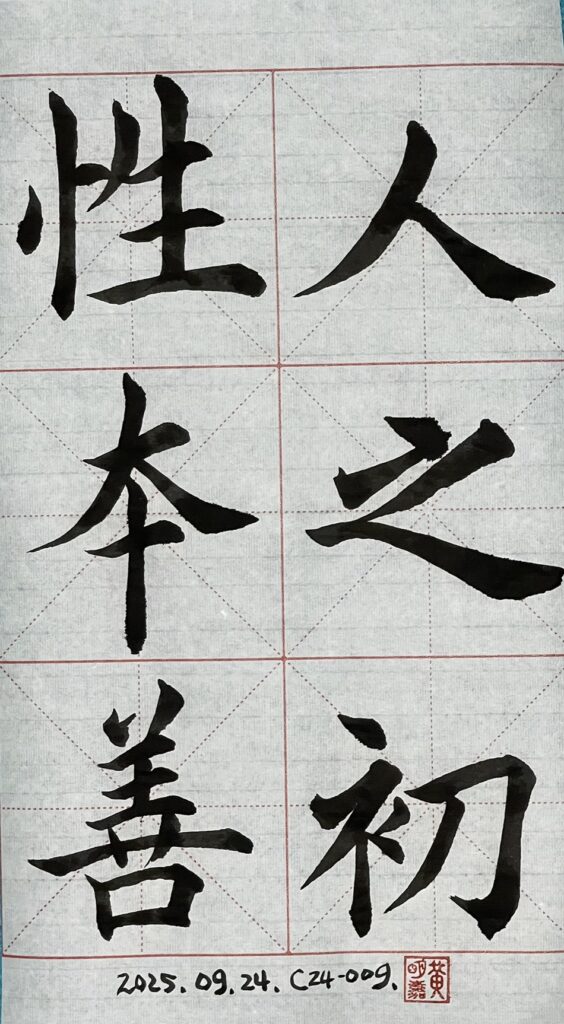 人之初
性本善
2025.09.24. C24-009.